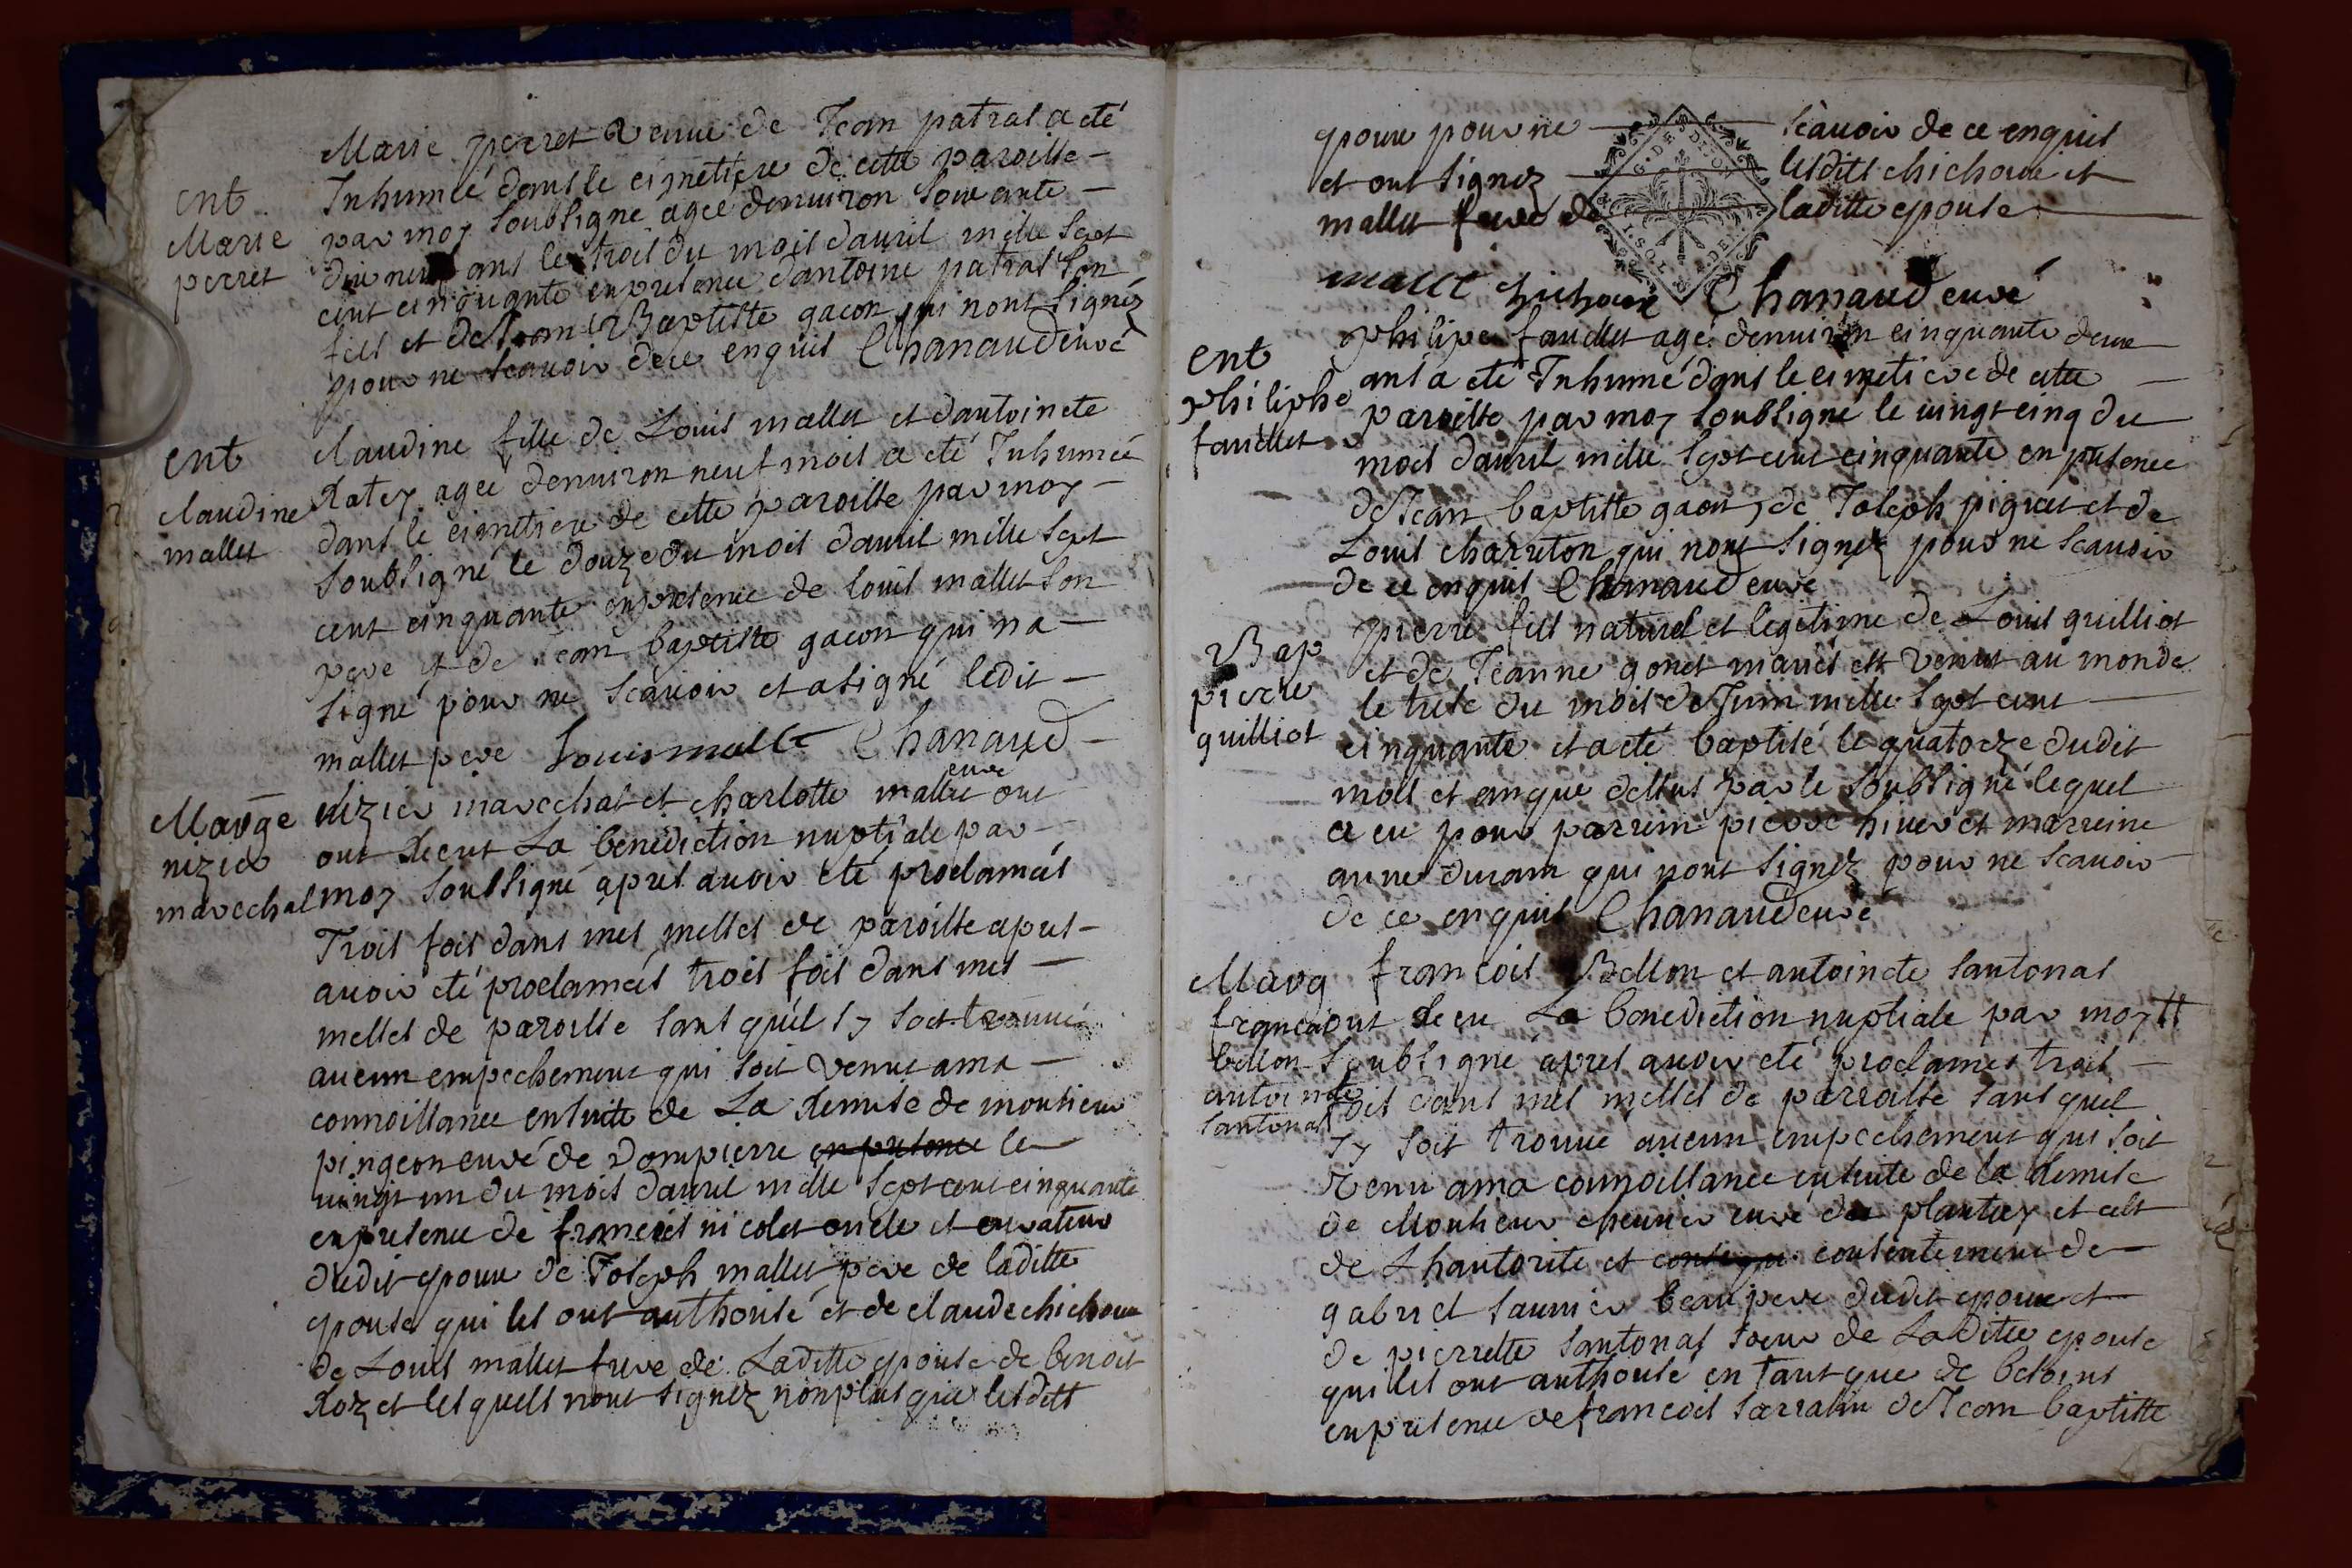 Marie perret veuve de Jean patras a eté
ent
Marie
perret
Inhumée dans le cimetiere de cette paroisse
par moy soubsigné agée denuiron soixante
dix neuf ans le trois du mois dauril mille sept
cent cinquante en presence dantoine patras son
fils et de Jean Baptiste gacon qui nont signéz
pour ne scauoir de ce enquis Chanaud curé
ent
claudine
mallet
claudine fille de Louis mallet et dantoinete
Ratey agée denuiron neuf mois a eté Inhumée
dans le cimetiere de cette paroisse par moy
soubsigné le douze du mois dauril mille sept
cent cinquante en presence de louis mallet son
pere et de jean baptiste gacon qui na
signé pour ne scauoir et a signé ledit
mallet pere Louis malle Chanaud
curé
Marge
nizier
marechal
nizier marechal et charlotte mallet ont
ont Receut La benediction nuptiale par
moy soubsigné apres auoir eté proclamés
Trois fois dans mes messes de paroisse apres
auoir eté proclamés trois fois dans mes
messes de paroisse sans quil sy soit trouué
aucun empechement qui soit venut a ma
connoissance ensuite de La Remise de monsieur
pingeon curé de Dompierre en presence le
uingt un du mois dauril mille sept cent cinquante
en presence de francois nicolet oncle et curateur
dudit epoux de Joseph mallet pere de laditte
epouse qui les ont authorisé et de claude chichoux
de Louis mallet frere de Laditte epouse de benoit
Roz et lesquels nont signez non plus que lesdits
epoux pour ne scauoir de ce enquis
et ont signez lesdits chichoux et
mallet frere de laditte epouse
G. DE DIJON
malle chichoux Chanaud curé
ent
philiphe
faudlet
philipe faudlet agé denuiron cinquante deux
ans a eté Inhumé dans le cimetiere de cette
paroisse par moy soubsigné le uingt cinq du
mois dauril mille sept cent cinquante en presence
de Jean baptiste gacon, de Joseph pigret et de
Louis charreton qui nont signez pour ne scauoir
de ce enquis Chanaud curé
Bap
pierre
guilliot
pierre fils naturel et legitime de Louis guilliot
et de Jeanne gonet mariés est venut au monde
le treise du mois de Juin mille sept cent
cinquante et a eté baptisé le quatorze dudit
mois et an que dessus par le soubsigné lequel
a eu pour parrein pierre hiuer et marreine
anne duram qui nont signez pour ne scauoir
de ce enquis Chanaud curé
Marg
francois
bellon
antoinete
santonas
francois Bellon et antoinete santonas
ont Receu La benediction nuptiale par moy
soubsigné apres auoir eté proclames trois
fois dans mes messes de parroisse sans quil
sy soit trouué aucun empechement qui soit
venu a ma connoissance ensuite de la Remise
de Monsieur cheunier curé du plantey et cest
de Lhautorité et consentement de
gabriel saunier beau pere dudit epoux et
de pierrette santonas soeur de Laditte epouse
qui les ont authorisé en tant que de besoins
en presence de francois sarrasin de Jean baptiste